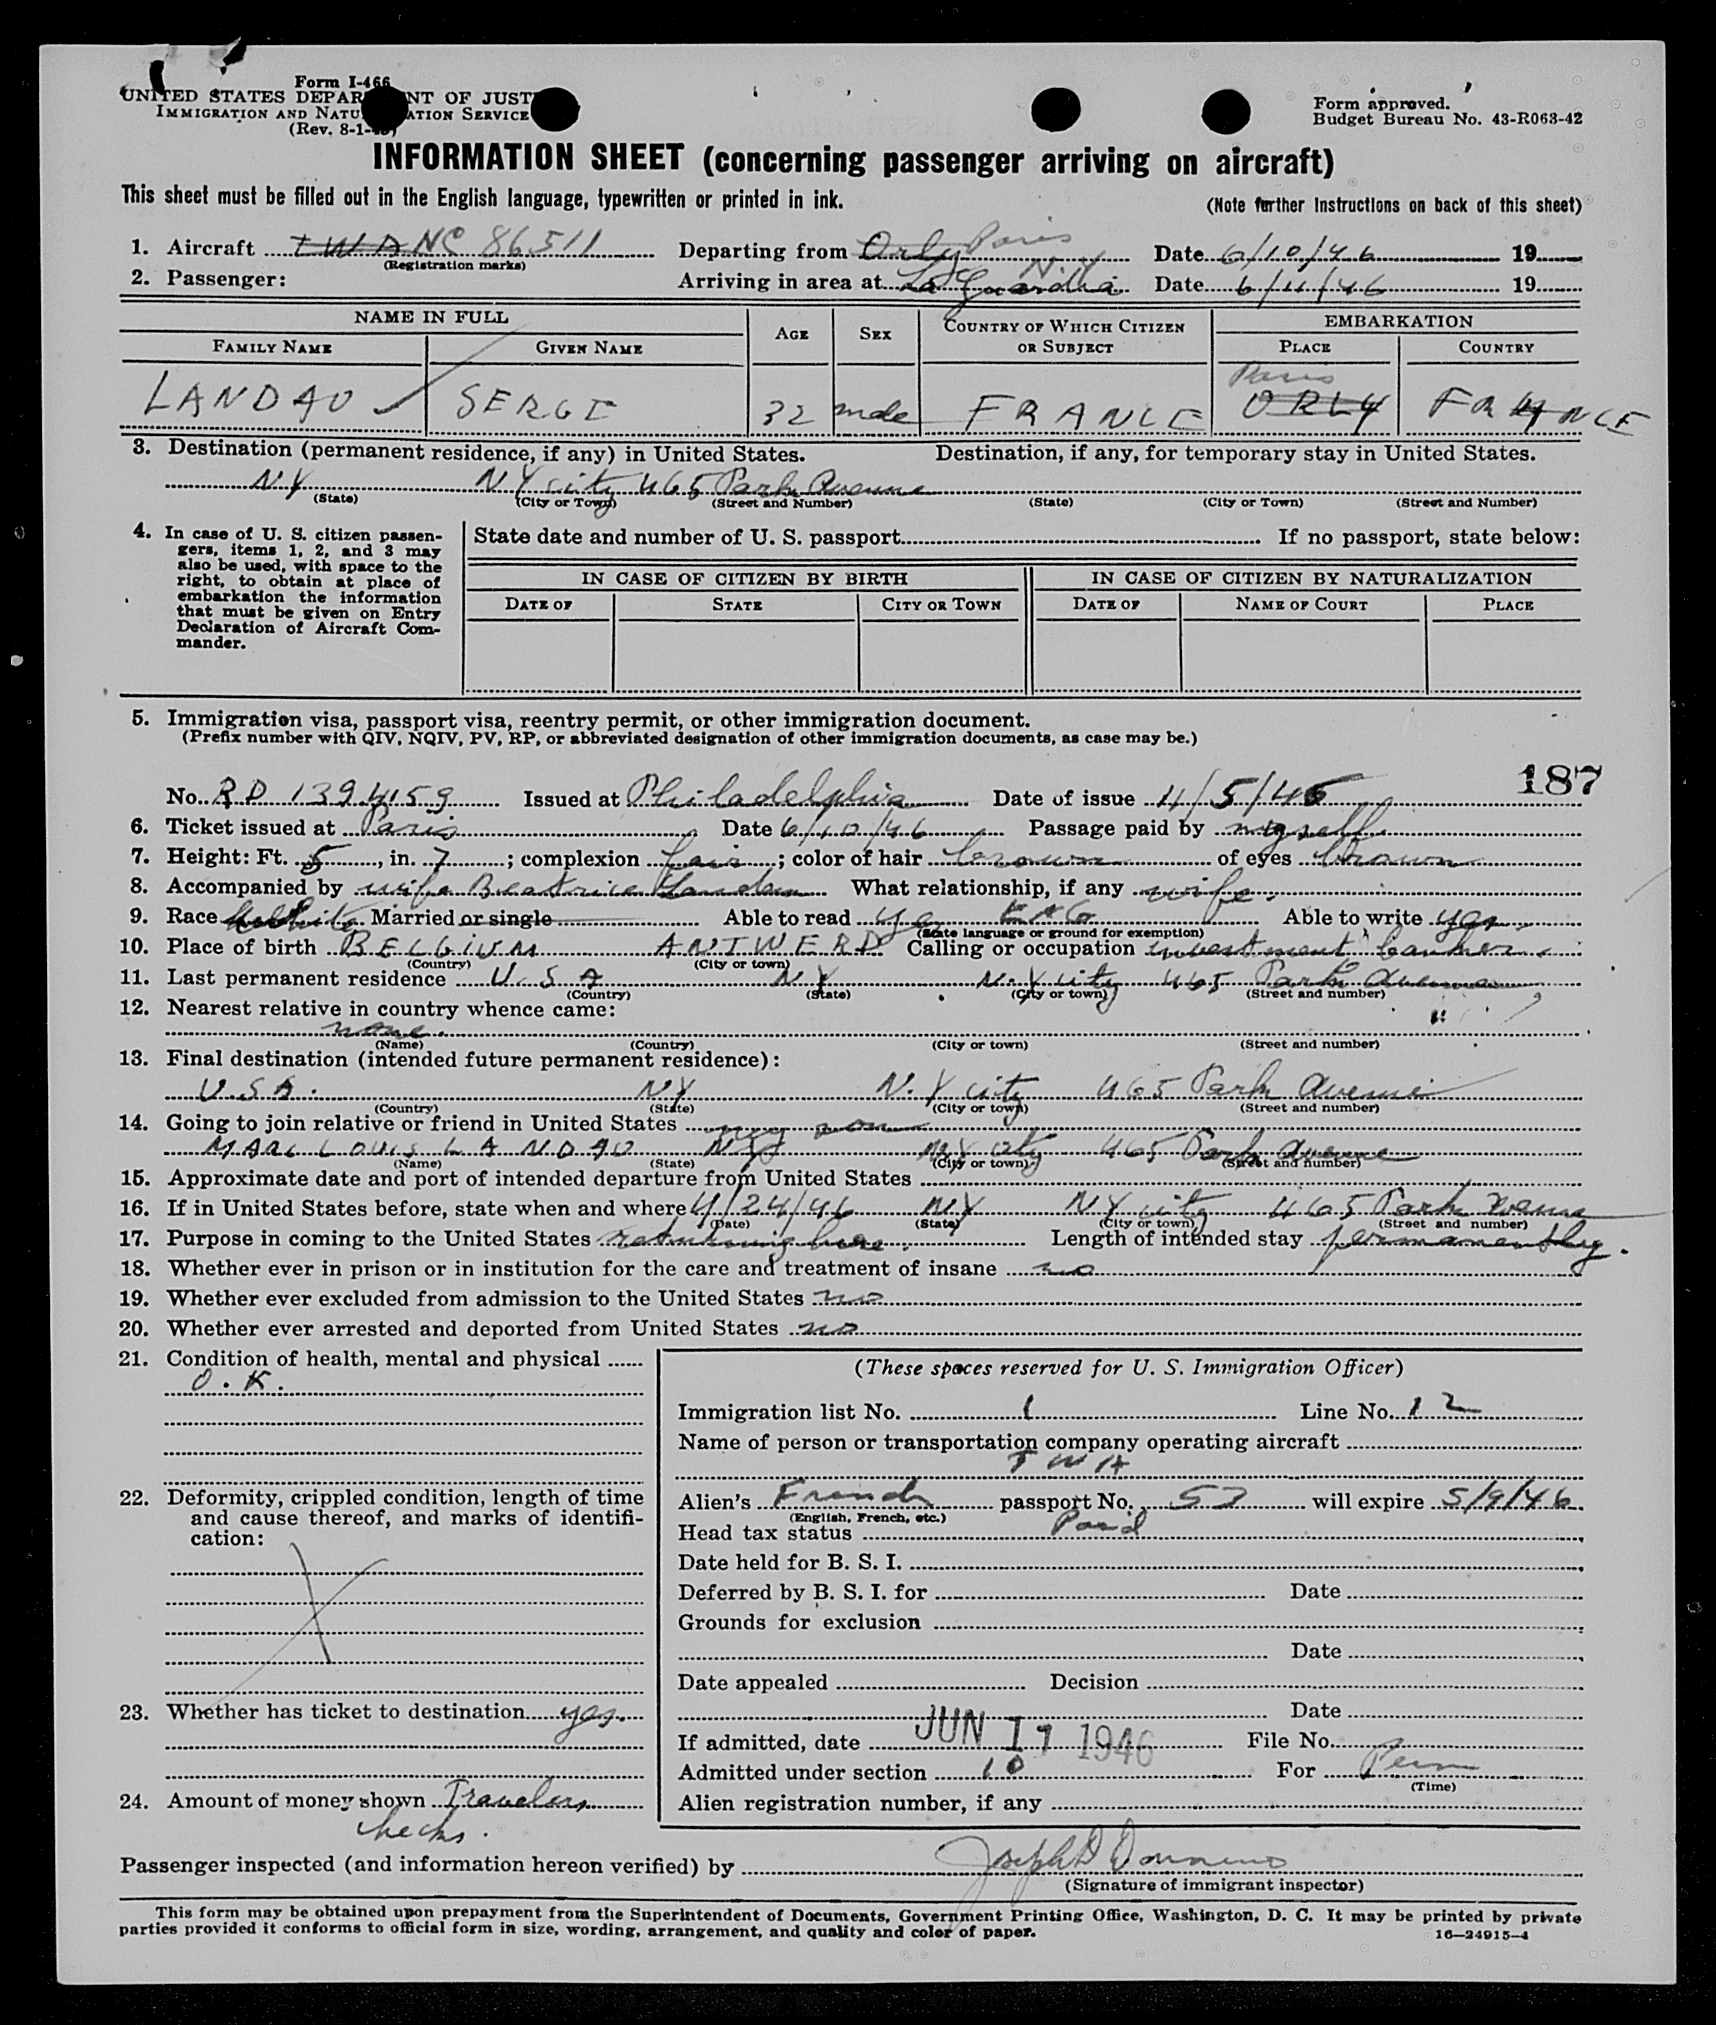 Form I-466
UNITED STATES DEPARTMENT OF JUSTICE
IMMIGRATION AND NATURALIZATION SERVICE
(Rev. 8-1-45)
Form approved.
Budget Bureau No. 43-R063-42
INFORMATION SHEET (concerning passenger arriving on aircraft)
This sheet must be filled out in the English language, typewritten or printed in ink.
(Note further Instructions on back of this sheet)
1. Aircraft TWA NC 86511 Departing from Orly Paris Date 6/10/46 19
(Registration marks)
2. Passenger: Arriving in area at La Guardia N.Y Date 6/11/46 19
NAME IN FULL AGE SEX COUNTRY OF WHICH CITIZEN OR SUBJECT EMBARKATION
FAMILY NAME GIVEN NAME PLACE COUNTRY
Paris
LANDAU SERGE 32 male FRANCE ORLY FRANCE
3. Destination (permanent residence, if any) in United States. Destination, if any, for temporary stay in United States.
NY NY city 465 Park Avenue
(State) (City or Town) (Street and Number) (State) (City or Town) (Street and Number)
4. In case of U. S. citizen passengers, items 1, 2, and 3 may also be used, with space to the right, to obtain at place of embarkation the information that must be given on Entry Declaration of Aircraft Commander.
State date and number of U. S. passport If no passport, state below:
IN CASE OF CITIZEN BY BIRTH IN CASE OF CITIZEN BY NATURALIZATION
DATE OF STATE CITY OR TOWN DATE OF NAME OF COURT PLACE
5. Immigration visa, passport visa, reentry permit, or other immigration document.
(Prefix number with QIV, NQIV, PV, RP, or abbreviated designation of other immigration documents, as case may be.)
187
No. RP 1394159 Issued at Philadelphia Date of issue 4/5/46
6. Ticket issued at Paris Date 6/10/46 Passage paid by myself
7. Height: Ft. 5, in. 7; complexion fair; color of hair brown of eyes brown
8. Accompanied by wife Beatrice Landau What relationship, if any wife.
9. Race White Married or single Able to read yes ENG Able to write yes
(State language or ground for exemption)
10. Place of birth BELGIUM ANTWERP Calling or occupation investment banker
(Country) (City or town)
11. Last permanent residence U.S.A NY N.Y city 465 Park Avenue
(Country) (State) (City or town) (Street and number)
12. Nearest relative in country whence came:
none.
(Name) (Country) (City or town) (Street and number)
13. Final destination (intended future permanent residence):
U.S.A. NY N.Y city 465 Park Avenue
(Country) (State) (City or town) (Street and number)
14. Going to join relative or friend in United States my son
MARC LOUIS LANDAU NY NY city 465 Park Avenue
(Name) (State) (City or town) (Street and number)
15. Approximate date and port of intended departure from United States
16. If in United States before, state when and where 4/24/46 NY NY city 465 Park Avenue
(Date) (State) (City or town) (Street and number)
17. Purpose in coming to the United States returning here. Length of intended stay permanently.
18. Whether ever in prison or in institution for the care and treatment of insane no
19. Whether ever excluded from admission to the United States no
20. Whether ever arrested and deported from United States no
21. Condition of health, mental and physical
O.K.
22. Deformity, crippled condition, length of time
and cause thereof, and marks of identifi-
cation:
23. Whether has ticket to destination yes.
24. Amount of money shown Travelers
checks.
(These spaces reserved for U. S. Immigration Officer)
Immigration list No. 1 Line No. 12
Name of person or transportation company operating aircraft
TWA
Alien's French passport No. 57 will expire 5/9/46
(English, French, etc.)
Head tax status Paid
Date held for B. S. I.
Deferred by B. S. I. for Date
Grounds for exclusion
Date
Date appealed Decision
Date
If admitted, date JUN 11 1946 File No.
Admitted under section 10 For Perm
(Time)
Alien registration number, if any
Passenger inspected (and information hereon verified) by Joseph D
(Signature of immigrant inspector)
This form may be obtained upon prepayment from the Superintendent of Documents, Government Printing Office, Washington, D. C. It may be printed by private
parties provided it conforms to official form in size, wording, arrangement, and quality and color of paper.
16—24915-4